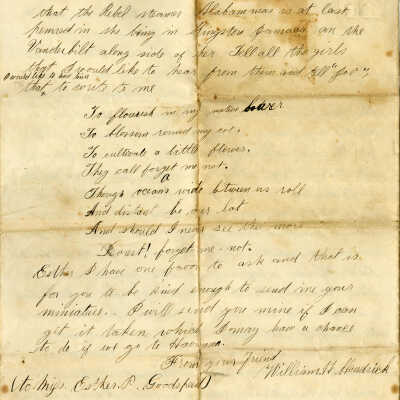 that the Rebel steamer Alabama was is at last
hemmed in she being in Kingston Jamaica an the
Vanderbilt along side of her Tell all the girls
that I would like to hear from them and tell
O would like to hear from
that to write to me
To flourish in my native bower
To blossom round my cot.
To cultivate a little flower.
They call forget me not.
Though oceans wide between us roll
And distant be our lot
And should I never see the more
forget me-not.
Esther I have one favor to ask and that is
for you to be kind enough to send me your
miniature. I will send you mine if I can
get it taken which I may have a chance
to do if we go to Havana.
From your friend
William H.
(to Miss. Esther. P. Goodspeed)